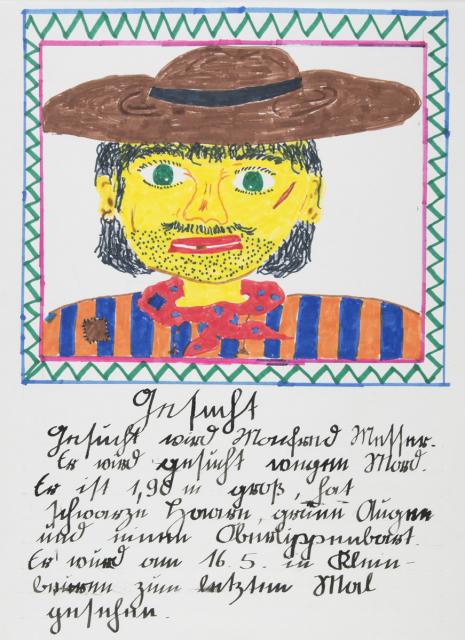 Gesucht
Gesucht wird Manfred Messer.
Er wird gesucht wegen Mord.
Er ist 1,98 m groß, hat
schwarze Haare, grüne Augen
und einen Oberlippenbart.
Er wurd am 16.5. in Klein-
zum letzten Mal
gesehen.